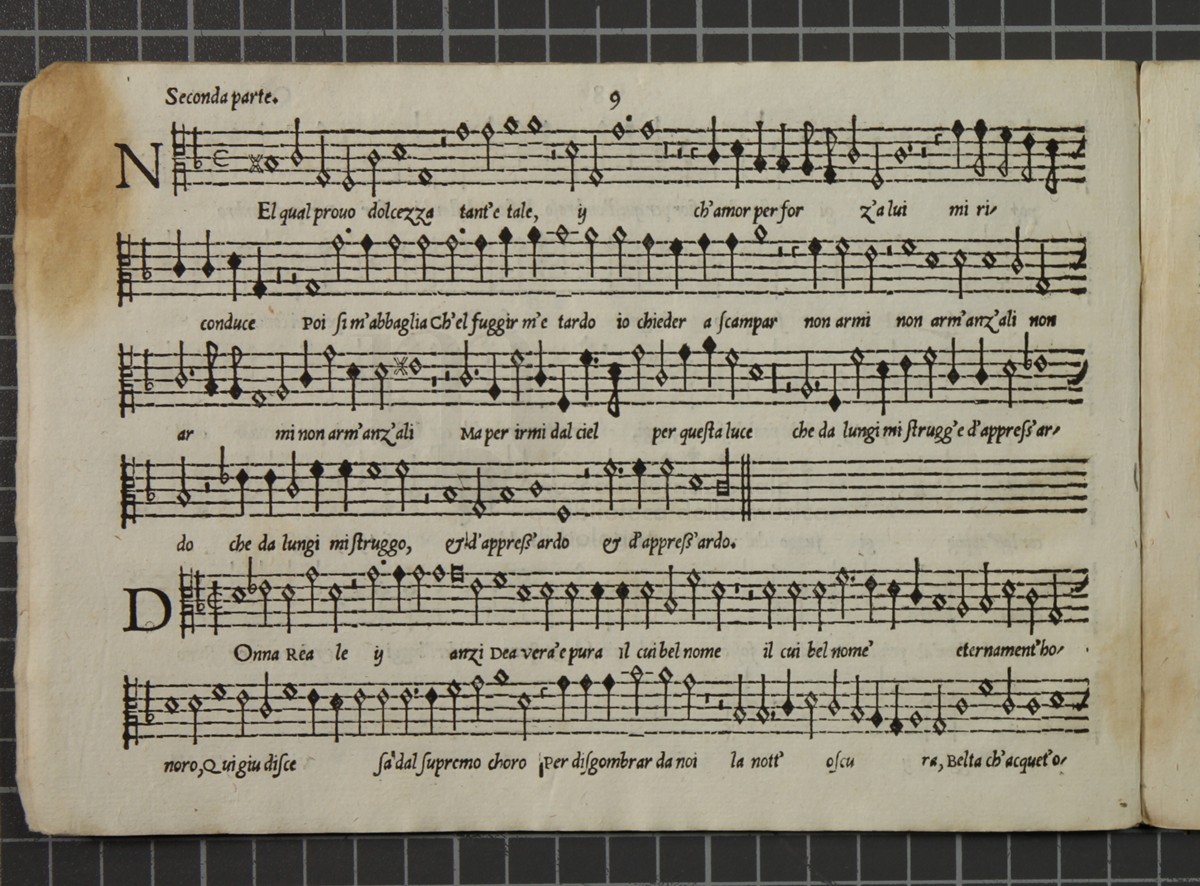 Seconda parte. 9
NEl qual prouo dolcezza tant'e tale, ij ch'amor per for z'a lui mi ri/
conduce Poi si m'abbaglia Ch'el fuggir m'e tardo io chieder a scampar non armi non arm'anz'ali non
ar mi non arm'anz'ali Ma per irmi dal ciel per questa luce che da lungi mi strugg'e d'appress'ar/
do che da lungi mi struggo, & d'appress'ardo & d'appress'ardo.
DOnna Rea le ij anzi Dea vera'e pura il cui bel nome il cui bel nome' eternament'ho/
noro, Qui giu disce sa'dal supremo choro Per disgombrar da noi la nott' oscu ra, Belta ch'acquet'o/